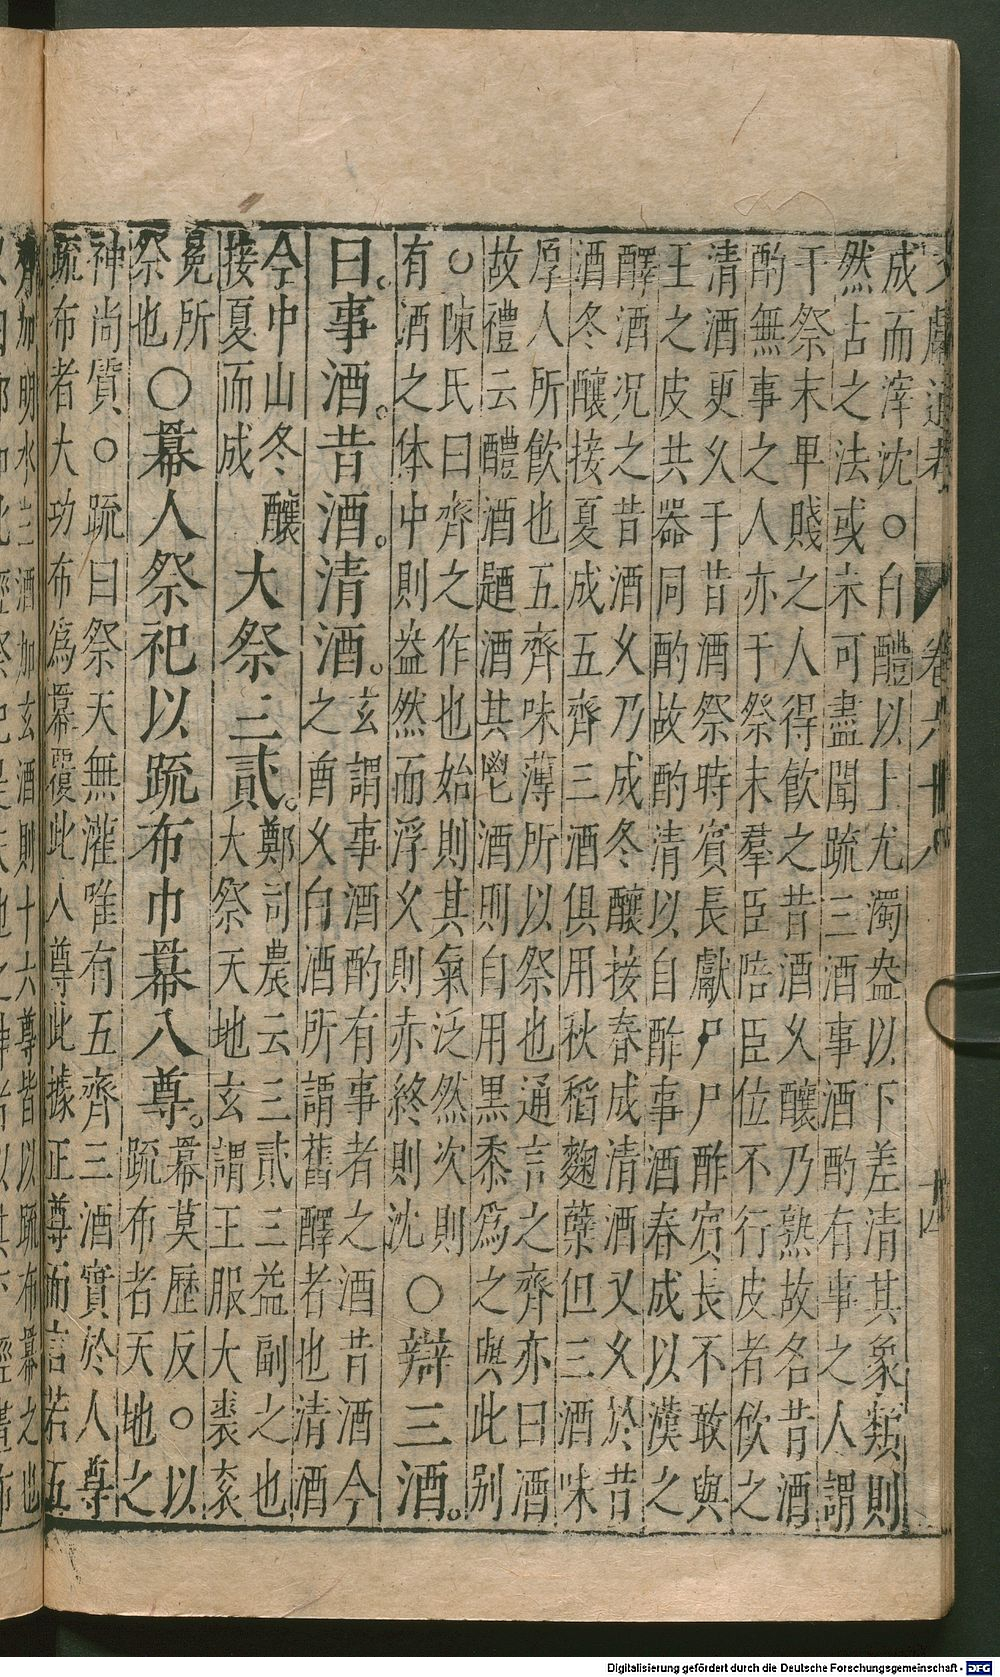 文獻通考 卷六十八 十四
成而滓沈○自醴以上尤濁盎以下差清其象類則
然古之法或未可盡聞疏三酒事酒酌有事之人謂
于祭末卑賤之人得飲之昔酒久釀乃熟故名昔酒
酌無事之人亦于祭末羣臣陪臣位不行皮者飲之
清酒更久于昔酒祭時賓長獻尸尸酢賓長不敢與
王之皮共器同酌故酌清以自酢事酒春成以漢之
醳酒况之昔酒久乃成冬釀接春成清酒又久於昔
酒冬釀接夏成五齊三酒俱用秋稻麴糵但三酒味
厚人所飲也五齊味薄所以祭也通言之齊亦曰酒
故禮云醴酒䤈酒其鬯酒則自用黑黍爲之與此别
○陳氏曰齊之作也始則其氣泛然次則
有酒之体中則益然而浮久則赤終則沈
○辯三酒。
曰。事酒。昔酒。清酒。
玄謂事酒酌有事者之酒昔酒今
之酋久白酒所謂舊醳者也清酒
今中山冬釀
接夏而成
大祭三貳。
鄭司農云三貳三益副之也
大祭天地玄謂王服大裘衮
冕所
祭也
○冪人祭祀以疏布巾冪八尊。
冪莫歷反○以
疏布者天地之
神尚質○疏曰祭天無灌唯有五齊三酒實於人尊
疏布者大功布爲冪覆此八尊此據正尊而言若五
齊加明水三酒加玄酒則十六尊皆以疏布冪之也
Digitalisierung gefördert durch die Deutsche Forschungsgemeinschaft - DFG